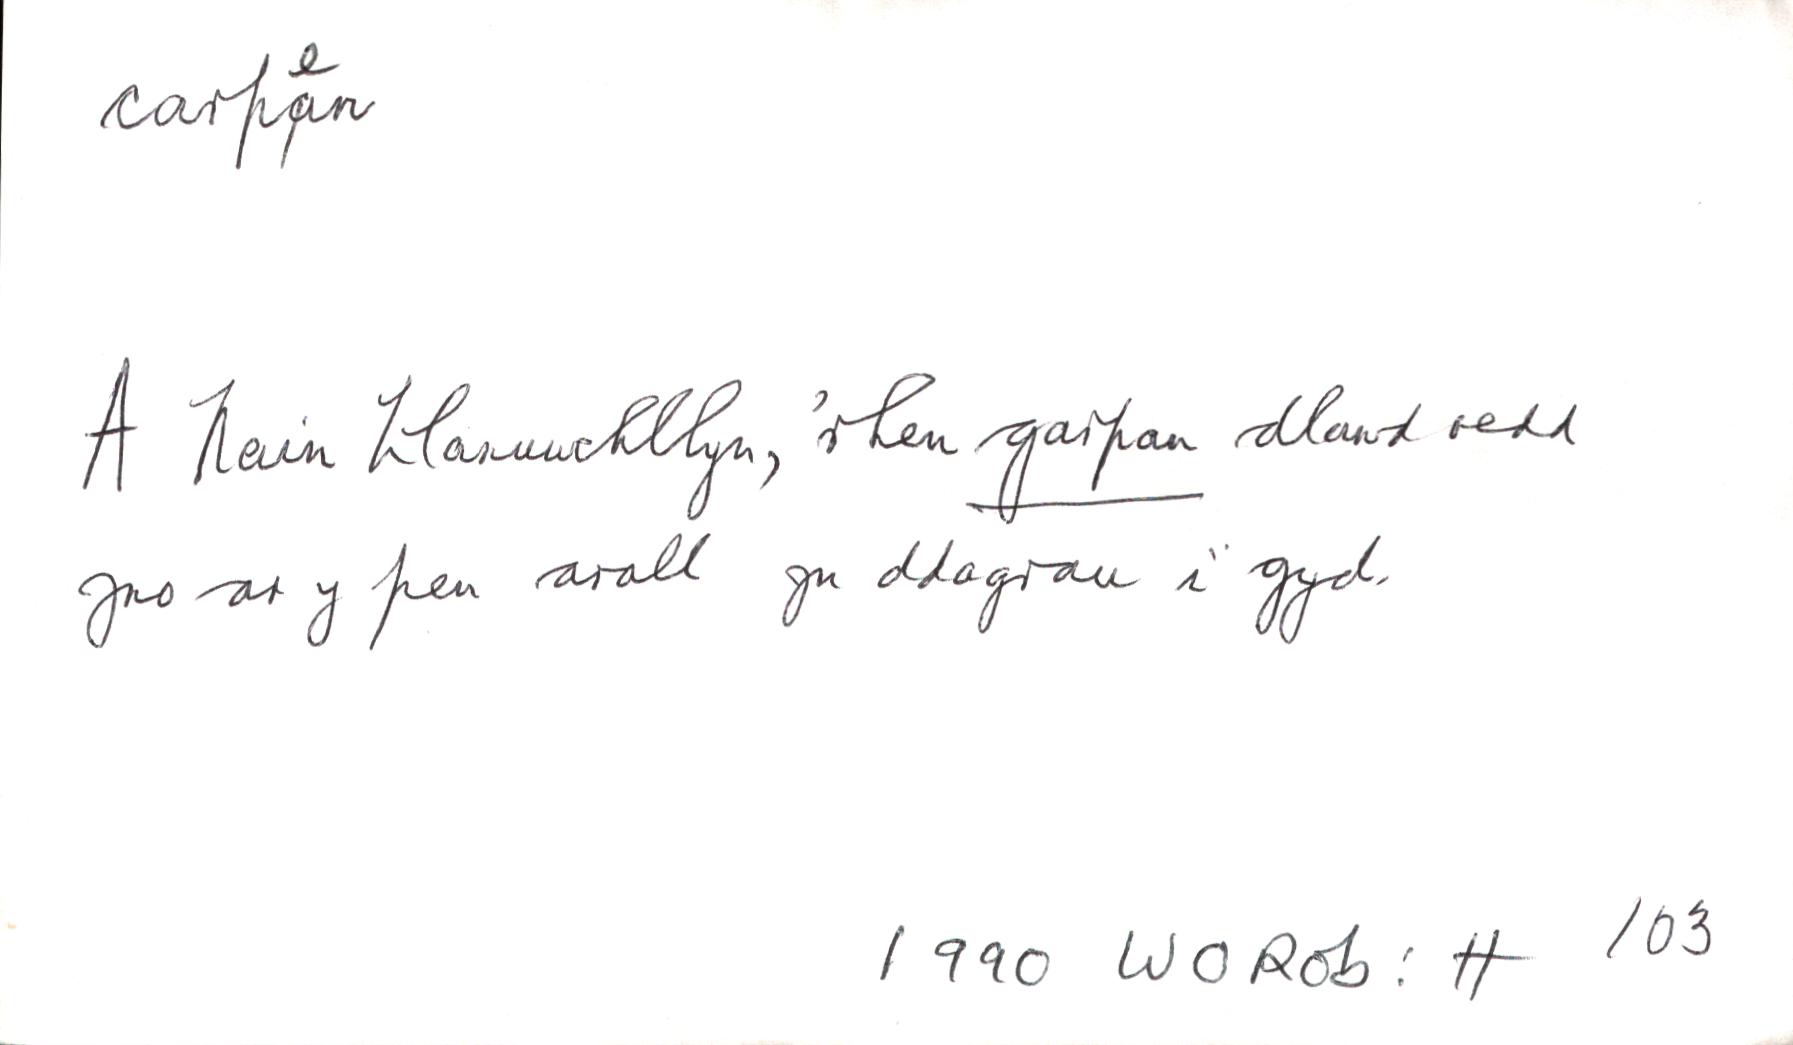 carpan
e
A Nain Llanuwchllyn, 'rhen garpan dlawd oedd
yno ar y pen arall yn ddagrau i gyd.
1990 WORob: H 103